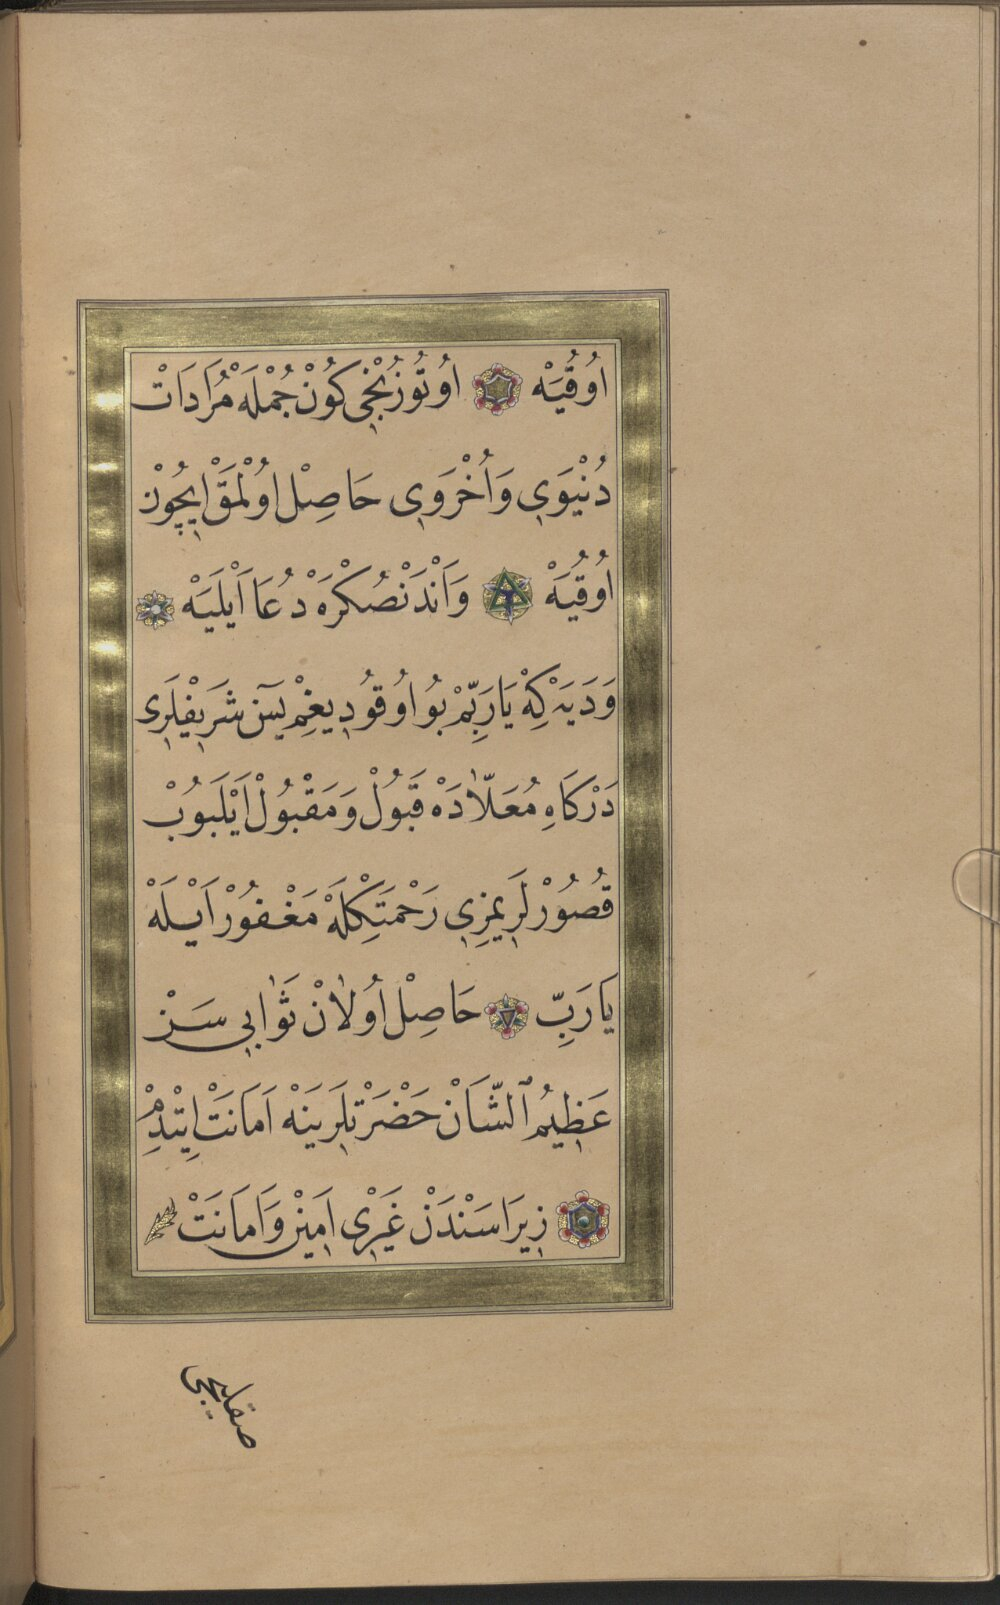 اُوقُیَهْ اوُتُوزُنْجِی كُونْ جُمْلَهْ مُرَادَاتْ
دُنْیَوِی وَاُخْرَوِی حَاصِلْ اوُلْمَقْ اِیچُونْ
اُوقُیَهْ وَاَنْدَنْصُكْرَهْ دُعَا اَیْلَیَهْ
وَدَیَهْ كِهْ یَارَبِّمْ بُو اوُقوُدِیغِمْ یٰسٓ شَرِیفْلَرِی
دَرْكَاهِ مُعَلّادَهْ قَبُولْ وَمَقْبُولْ اَیْلَیُوبْ
قُصُورْلَرِیمِزِی رَحْمَتِكْلَهْ مَغْفُورْ اَیْلَهْ
یَارَبِّ حَاصِلْ اُولَانْ ثَوَابِی سَنْ
عَظِیمُ ٱلشَّانْ حَضْرَتْلَرِینَهْ اَمَانَتْ اِیتْدِمْ
زِیرَا سَنْدَنْ غَیْرِی اَمِینْ وَاَمَانَتْ
صقلایجی